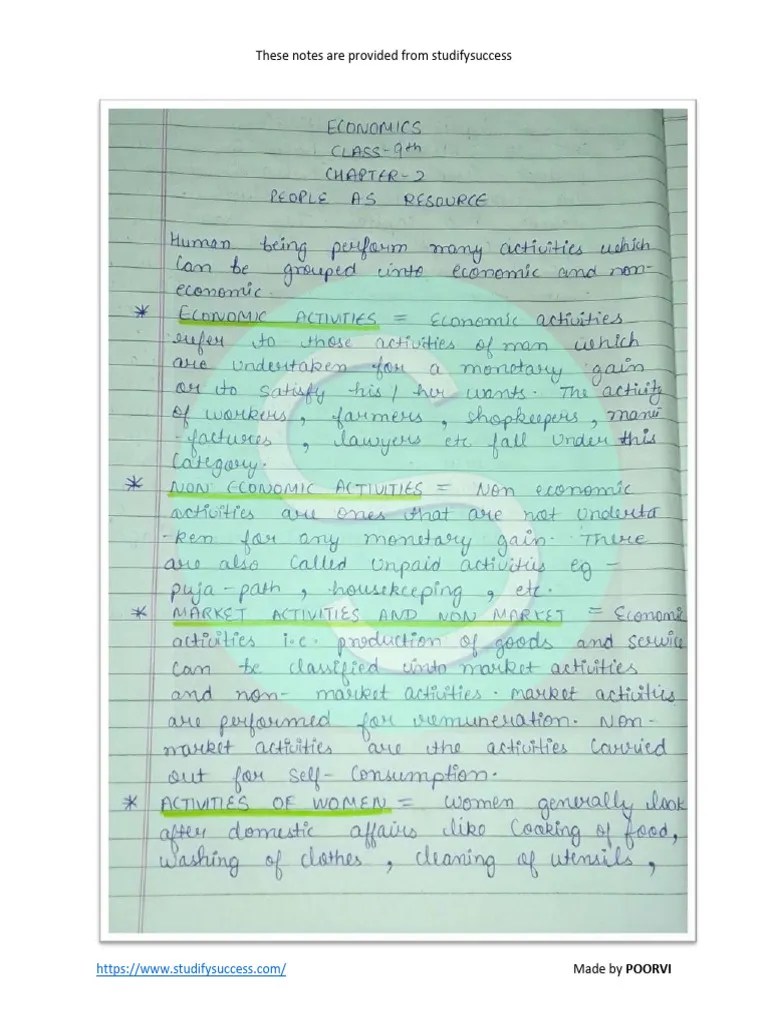 These notes are provided from studifysuccess
ECONOMICS
CLASS-9th
CHAPTER-2
PEOPLE AS RESOURCE
Human being perform many activities which
can be grouped into economic and non-
economic.
* ECONOMIC ACTIVITIES = Economic activities
refer to those activities of man which
are undertaken for a monetary gain
or to satisfy his/her wants. The activity
of workers, farmers, shopkeepers, manu
-factures, lawyers etc fall under this
category.
* NON ECONOMIC ACTIVITIES = Non economic
activities are ones that are not underta
-ken for any monetary gain. There
are also called unpaid activities eg -
puja-path, housekeeping, etc.
* MARKET ACTIVITIES AND NON MARKET = Economic
activities i.e. production of goods and service
can be classified into market activities
and non- market activities. market activities
are performed for remuneration. Non-
market activities are the activities carried
out for self- consumption.
* ACTIVITIES OF WOMEN = Women generally look
after domestic affairs like cooking of food,
washing of clothes, cleaning of utensils,
https://www.studifysuccess.com/
Made by POORVI